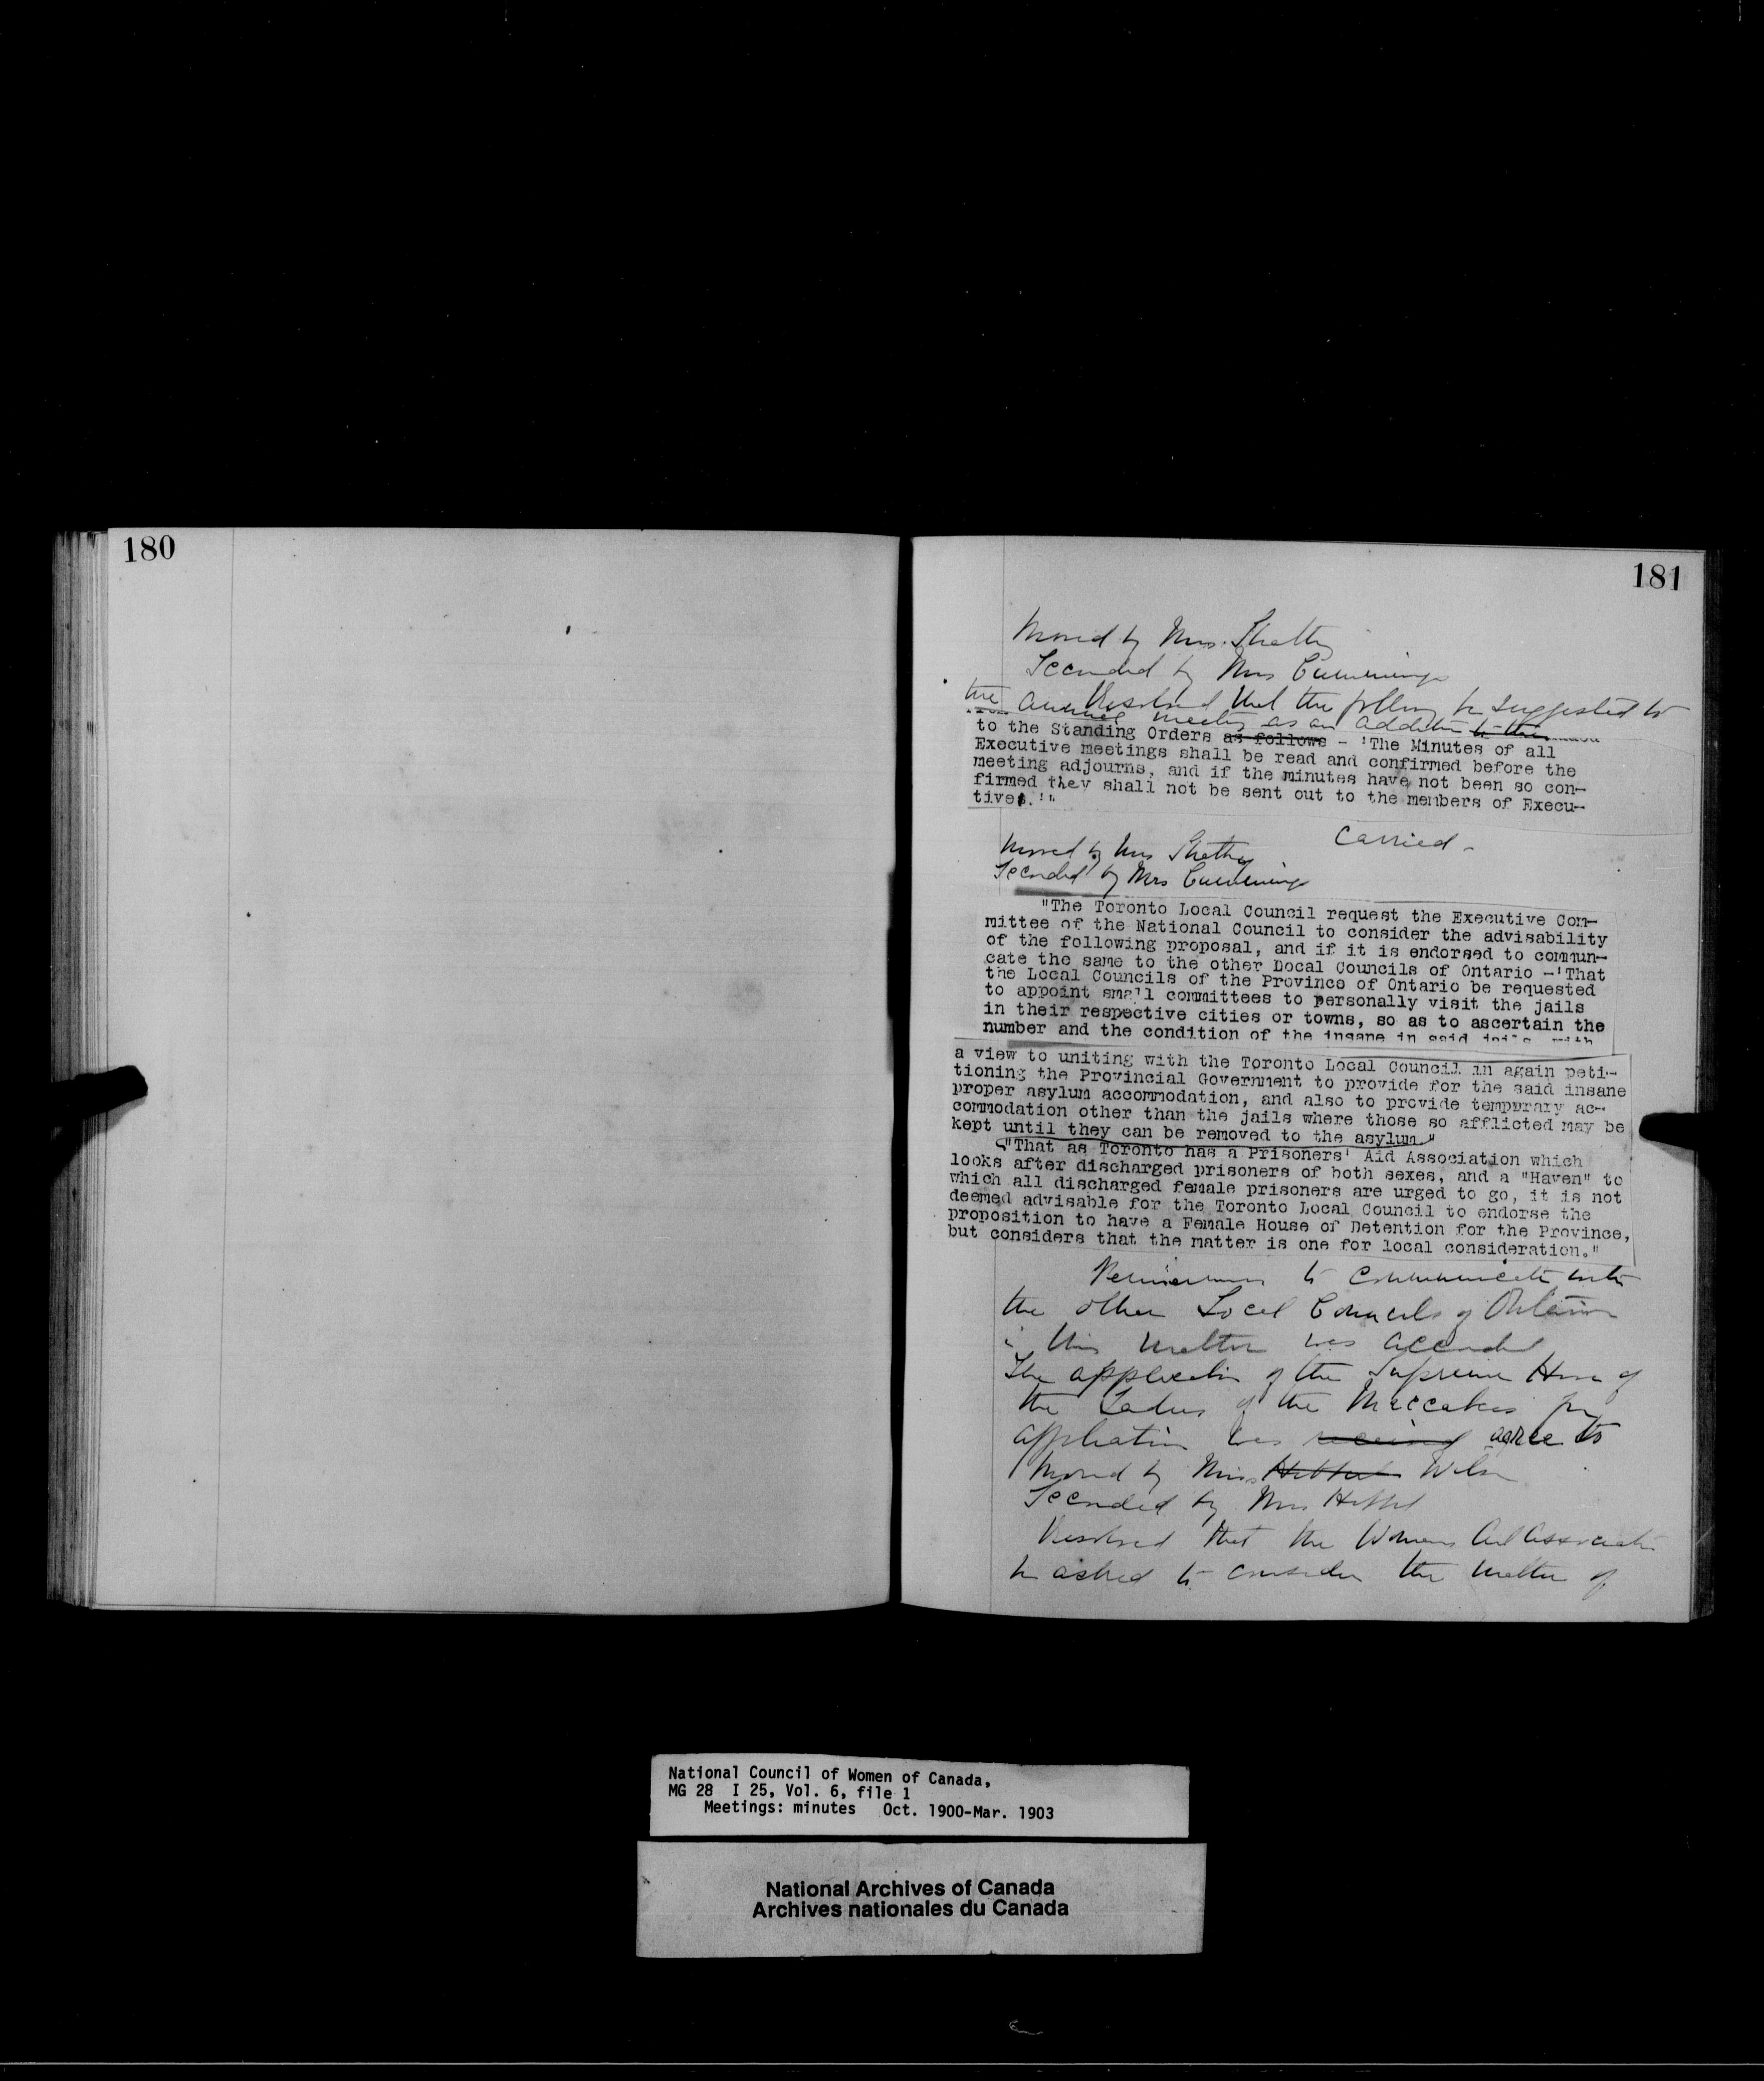 180
181
Moved by Mrs. Strathy
Seconded by Mrs Cummings
Resolved that the following be suggested to
the Annual meeting as an addition to the
to the Standing Orders as follows - 'The Minutes of all
Executive meetings shall be read and confirmed before the
meeting adjourns, and if the minutes have not been so con-
firmed they shall not be sent out to the members of Execu-
tive.'"
Carried -
Moved by Mrs Strathy
Seconded by Mrs Cummings
"The Toronto Local Council request the Executive Com-
mittee of the National Council to consider the advisability
of the following proposal, and if it is endorsed to commun-
cate the same to the other Docal Councils of Ontario -'That
the Local Councils of the Province of Ontario be requested
to appoint small committees to personally visit the jails
in their respective cities or towns, so as to ascertain the
number and the condition of the insane in said jails with
a view to uniting with the Toronto Local Council in again peti-
tioning the Provincial Government to provide for the said insane
proper asylum accommodation, and also to provide tempurary ac-
commodation other than the jails where those so afflicted may be
kept until they can be removed to the asylum."
"That as Toronto has a Prisoners' Aid Association which
looks after discharged prisoners of both sexes, and a "Haven" to
which all discharged female prisoners are urged to go, it is not
deemed advisable for the Toronto Local Council to endorse the
proposition to have a Female House of Detention for the Province,
but considers that the matter is one for local consideration."
Permission to communicate with
the other Local Councils of Ontario
in this matter was accorded
The application of the Supreme Hive of
the Ladies of the Maccabees for
affiliation was received agree to
Moved by Mrs Wilson
Seconded by Mrs
Resolved that the Womens Art Association
be asked to consider the matter of
National Council of Women of Canada,
MG 28 I 25, Vol. 6, file 1
Meetings: minutes Oct. 1900-Mar. 1903
National Archives of Canada
Archives nationales du Canada